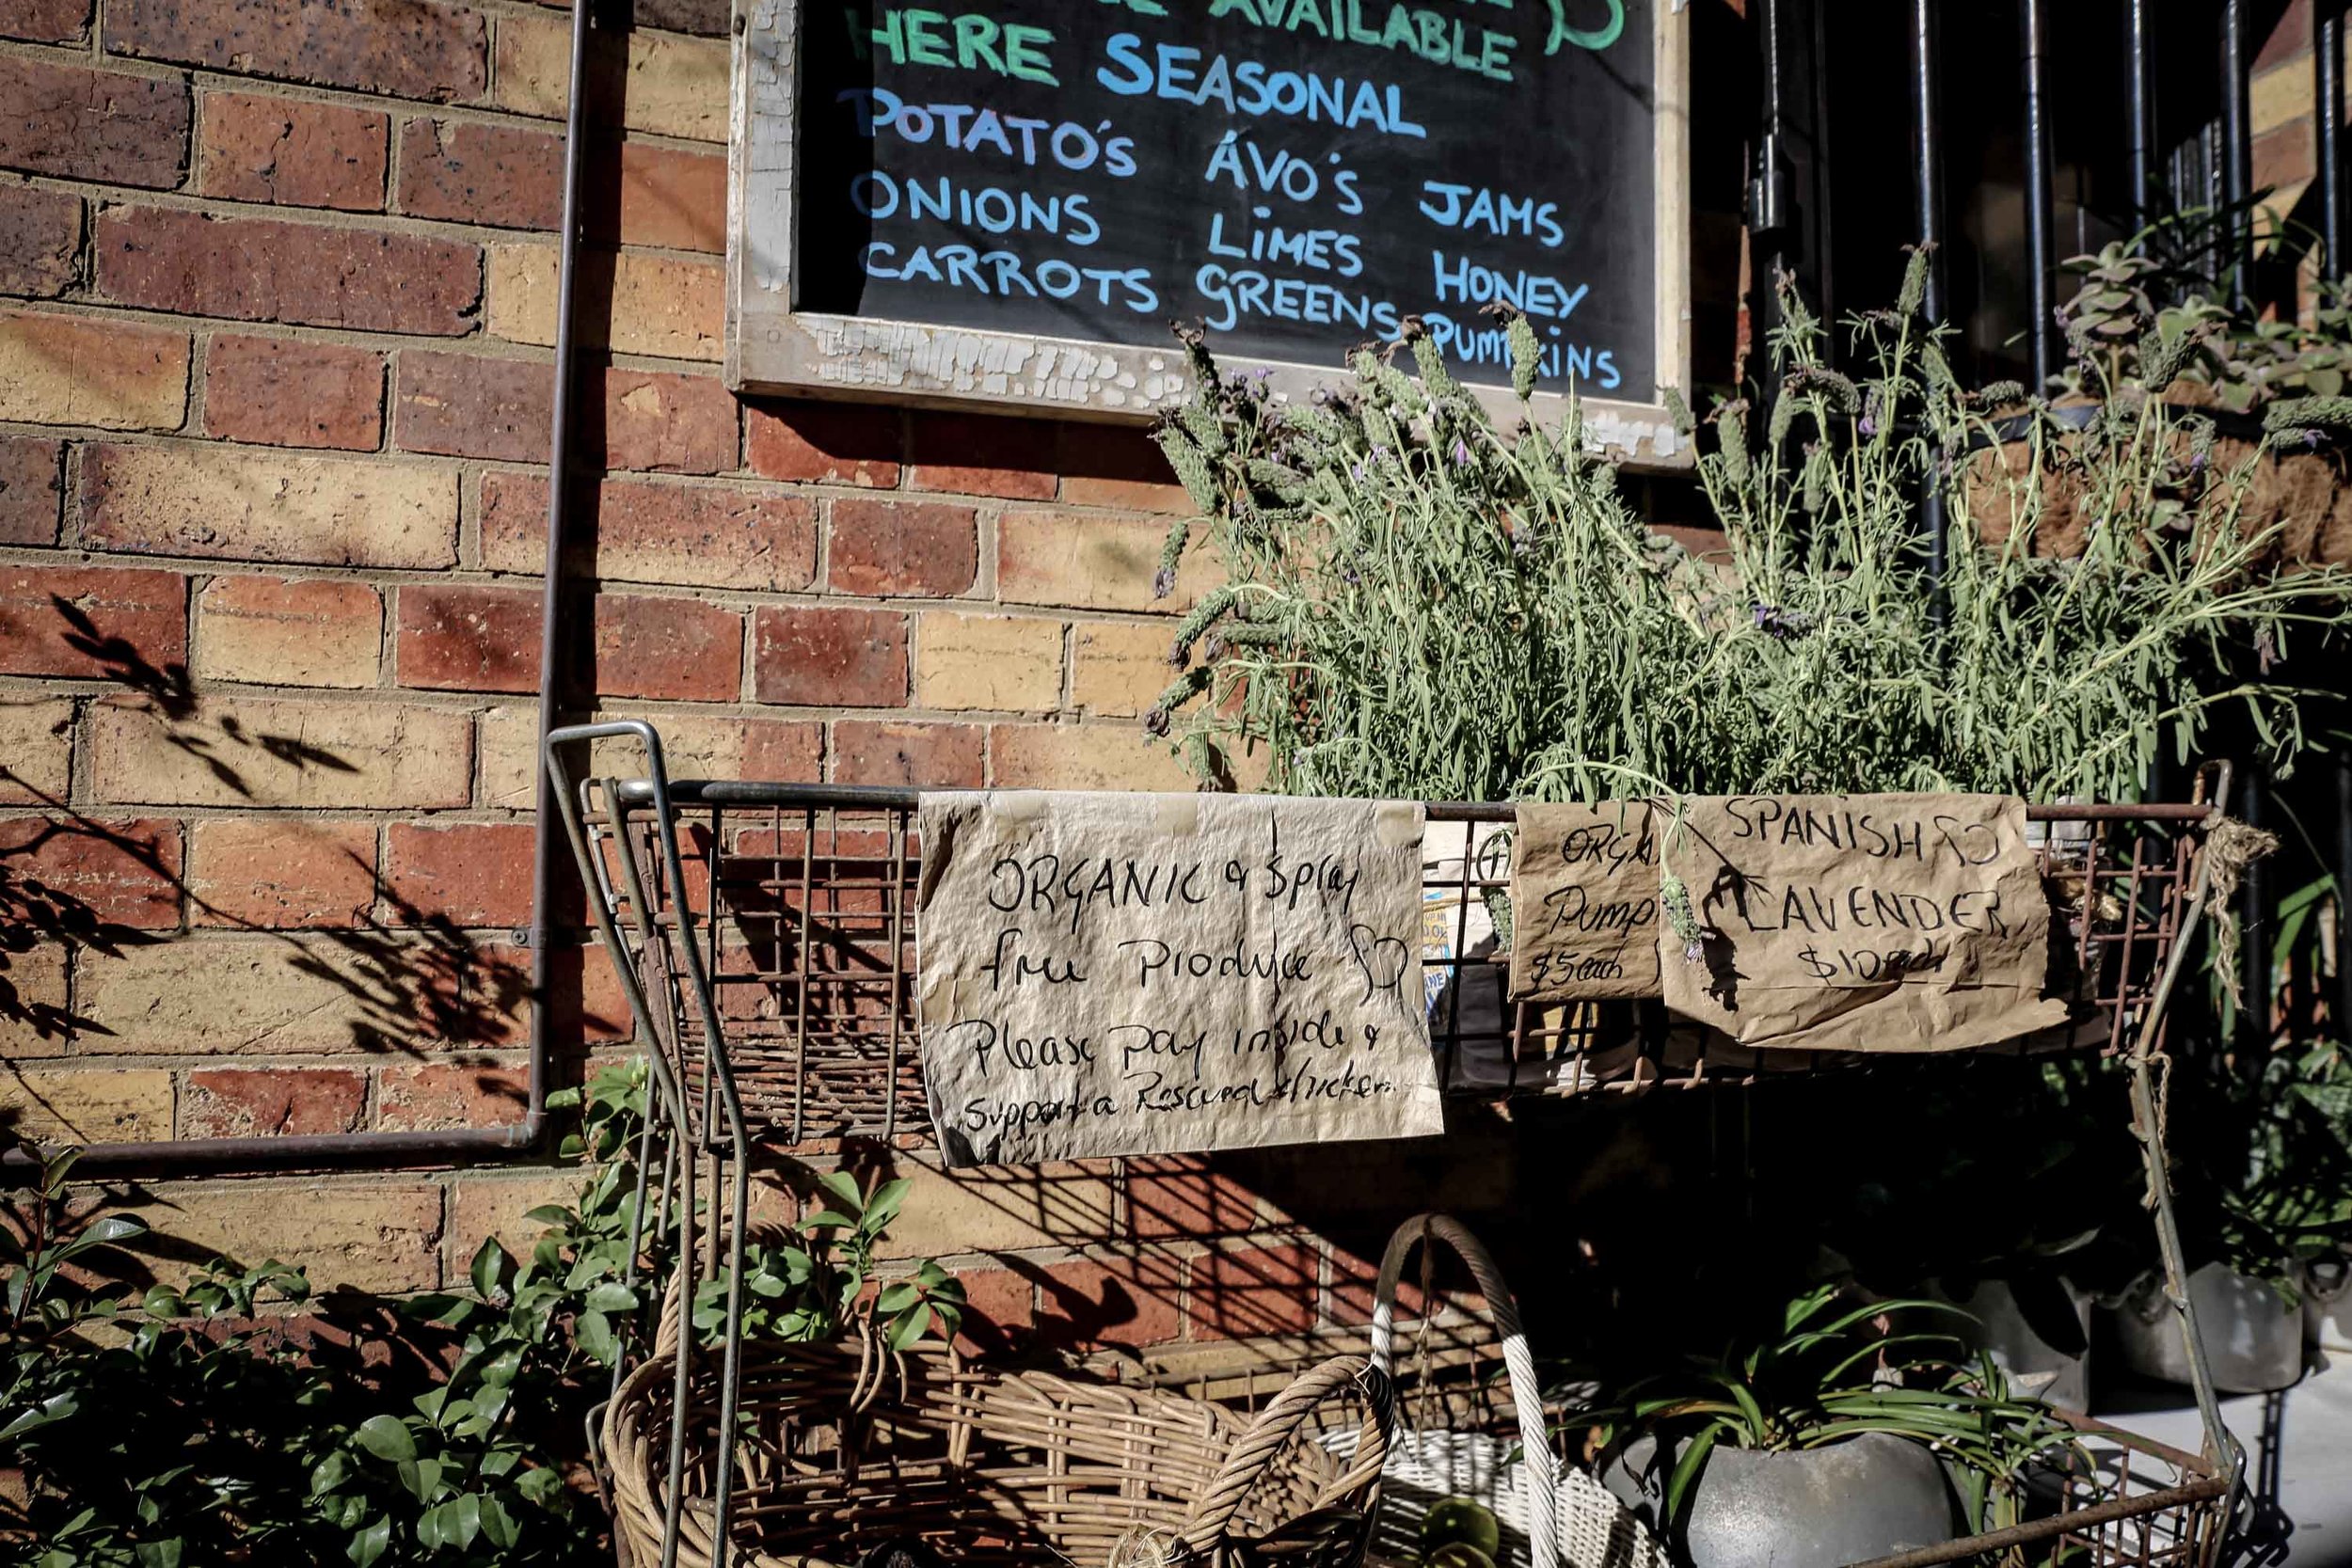 AVAILABLE
HERE SEASONAL
POTATO'S AVO'S JAMS
ONIONS LIMES HONEY
CARROTS GREENS PUMPKINS
ORGANIC & Spray
free Produce
Please pay inside &
Support a Rescued chicken.
ORGA
Pump
$5 each
SPANISH
LAVENDER
$10 each